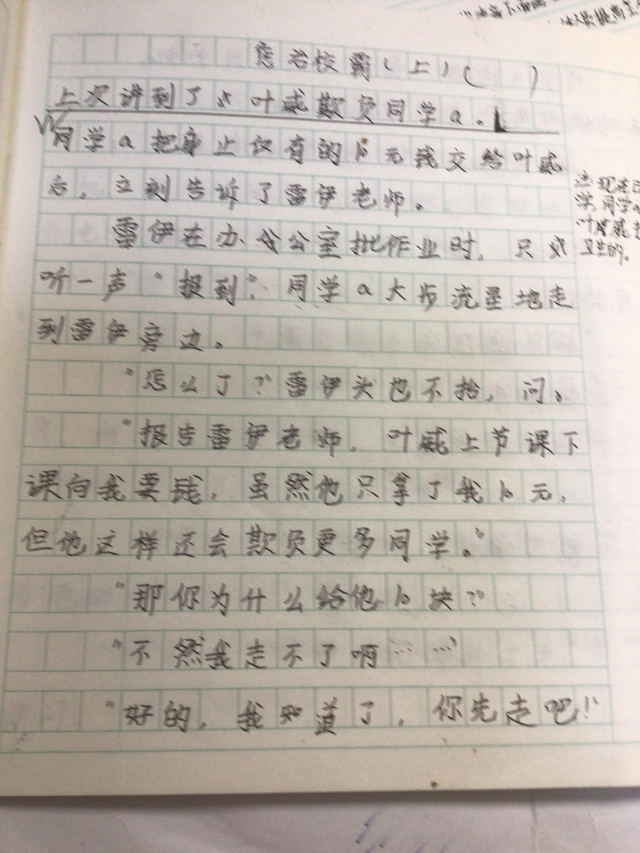 惩治校霸(上)( )
上次讲到了叶威欺负同学a。
同学a把身上仅有的10元钱交给叶威
后，立刻告诉了雷伊老师。
雷伊在办公室批作业时，只
听一声“报到”，同学a大步流星地走
到雷伊旁边。
“怎么了？”雷伊头也不抬，问。
“报告雷伊老师，叶威上节课下
课向我要钱，虽然他只拿了我10元，
但他这样还会欺负更多同学。”
“那你为什么给他10块？”
“不然我走不了啊……”
“好的，我知道了，你先走吧！”
现在
学,同学
叶威
卫生的。